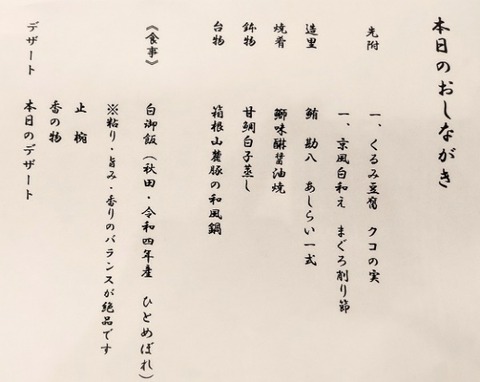 本日のおしながき
先附 一、くるみ豆腐 クコの実
一、京風白和え まぐろ削り節
造里 鮪 勘八 あしらい一式
焼肴 鰤味醂醤油焼
鉢物 甘鯛白子蒸し
台物 箱根山麓豚の和風鍋
《食事》 白御飯(秋田・令和四年産 ひとめぼれ)
※粘り・旨み・香りのバランスが絶品です
止椀
香の物
デザート 本日のデザート